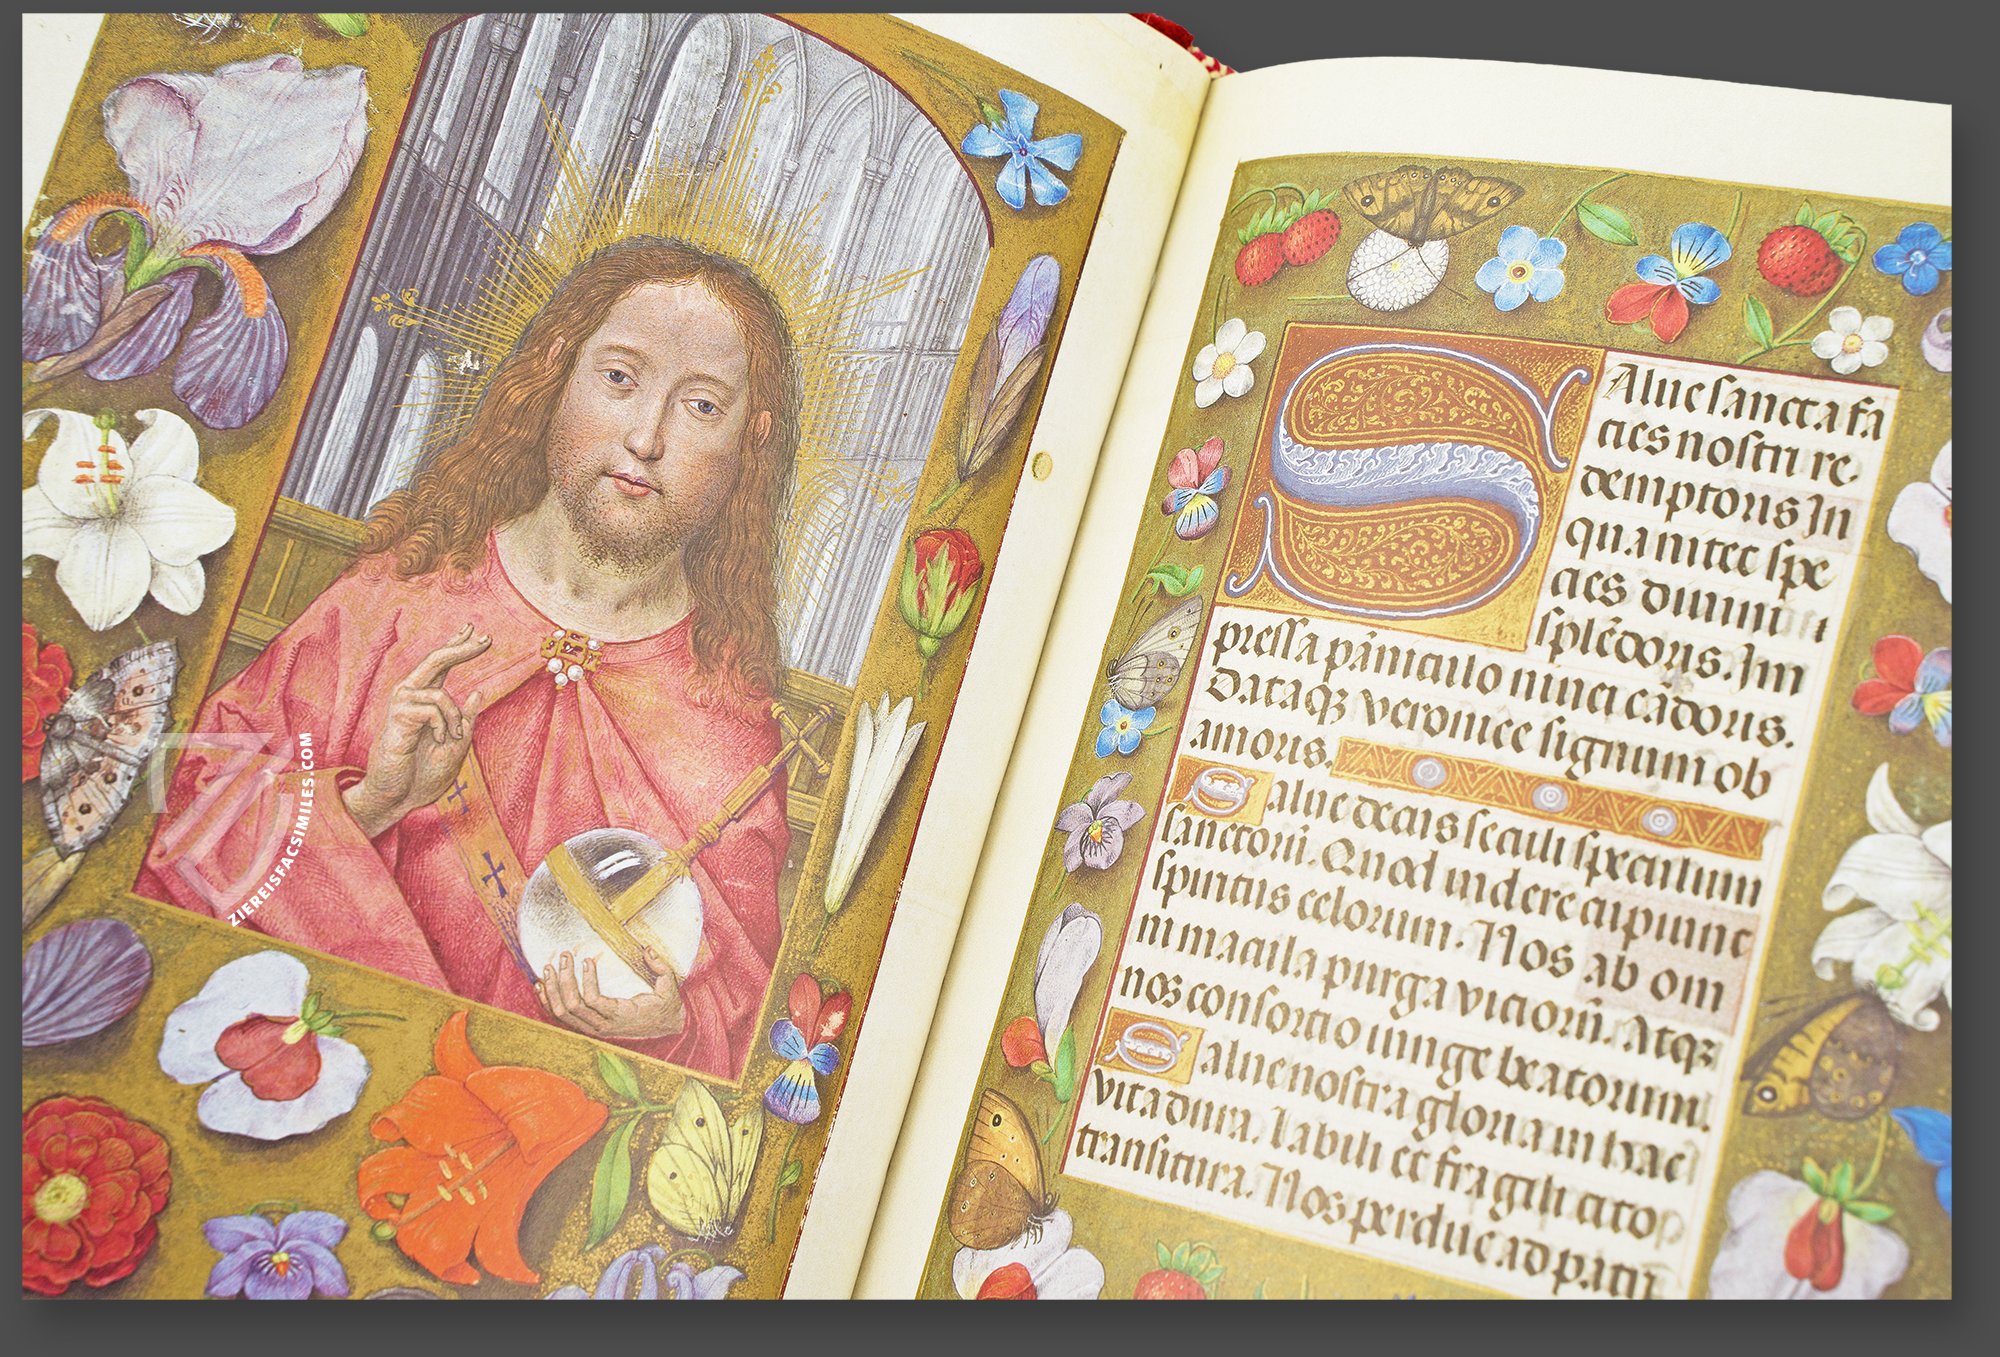 Salue sancta fa
cies nostri re
demptoris In
qua nitet spe
cies diuini
splēdoris. Im
pressa pāniculo niuei cādoris.
Dataqȝ veronice signum ob
amoris.
Salue decus seculi speculum
sanctorū. Quod uidere cupiunt
spiritus celorum. Nos ab om
ni macula purga viciorū. Atqȝ
nos consortio iunge beatorum.
Salue nostra gloria in hac
vita dura. Labili et fragili cito
transitura. Nos perduc ad patri
ZIEREISFACSIMILES.COM